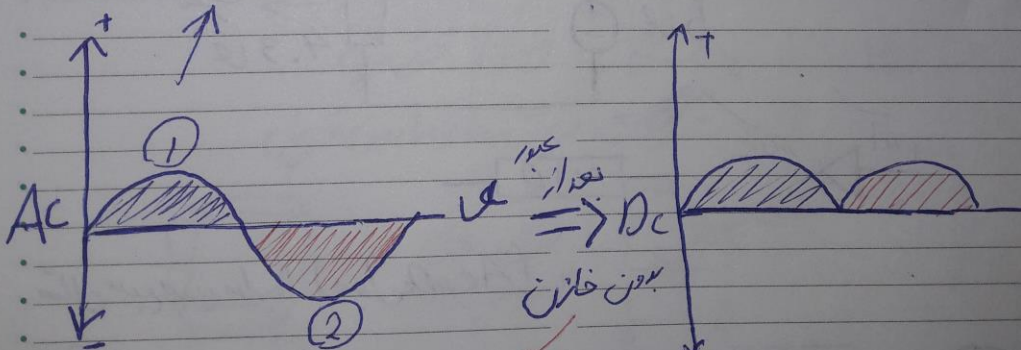 +
+
①
AC
بعد از عبور
DC
بدون خازن
②
-